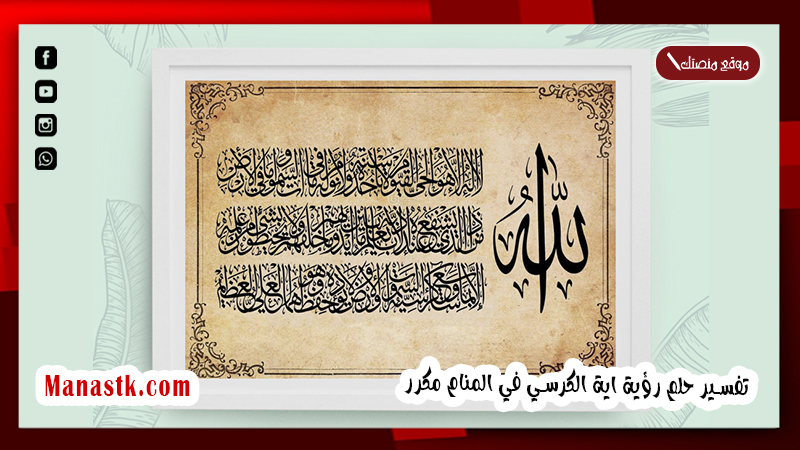 موقع منصتك
الله
لا إله إلا هو الحي القيوم لا تأخذه سنة ولا نوم له ما في السموات وما في الأرض
من ذا الذي يشفع عنده إلا بإذنه يعلم ما بين أيديهم وما خلفهم ولا يحيطون بشيء من علمه
إلا بما شاء وسع كرسيه السموات والأرض ولا يؤوده حفظهما وهو العلي العظيم
تفسير حلم رؤية اية الكرسي في المنام مكرر
Manastk.com